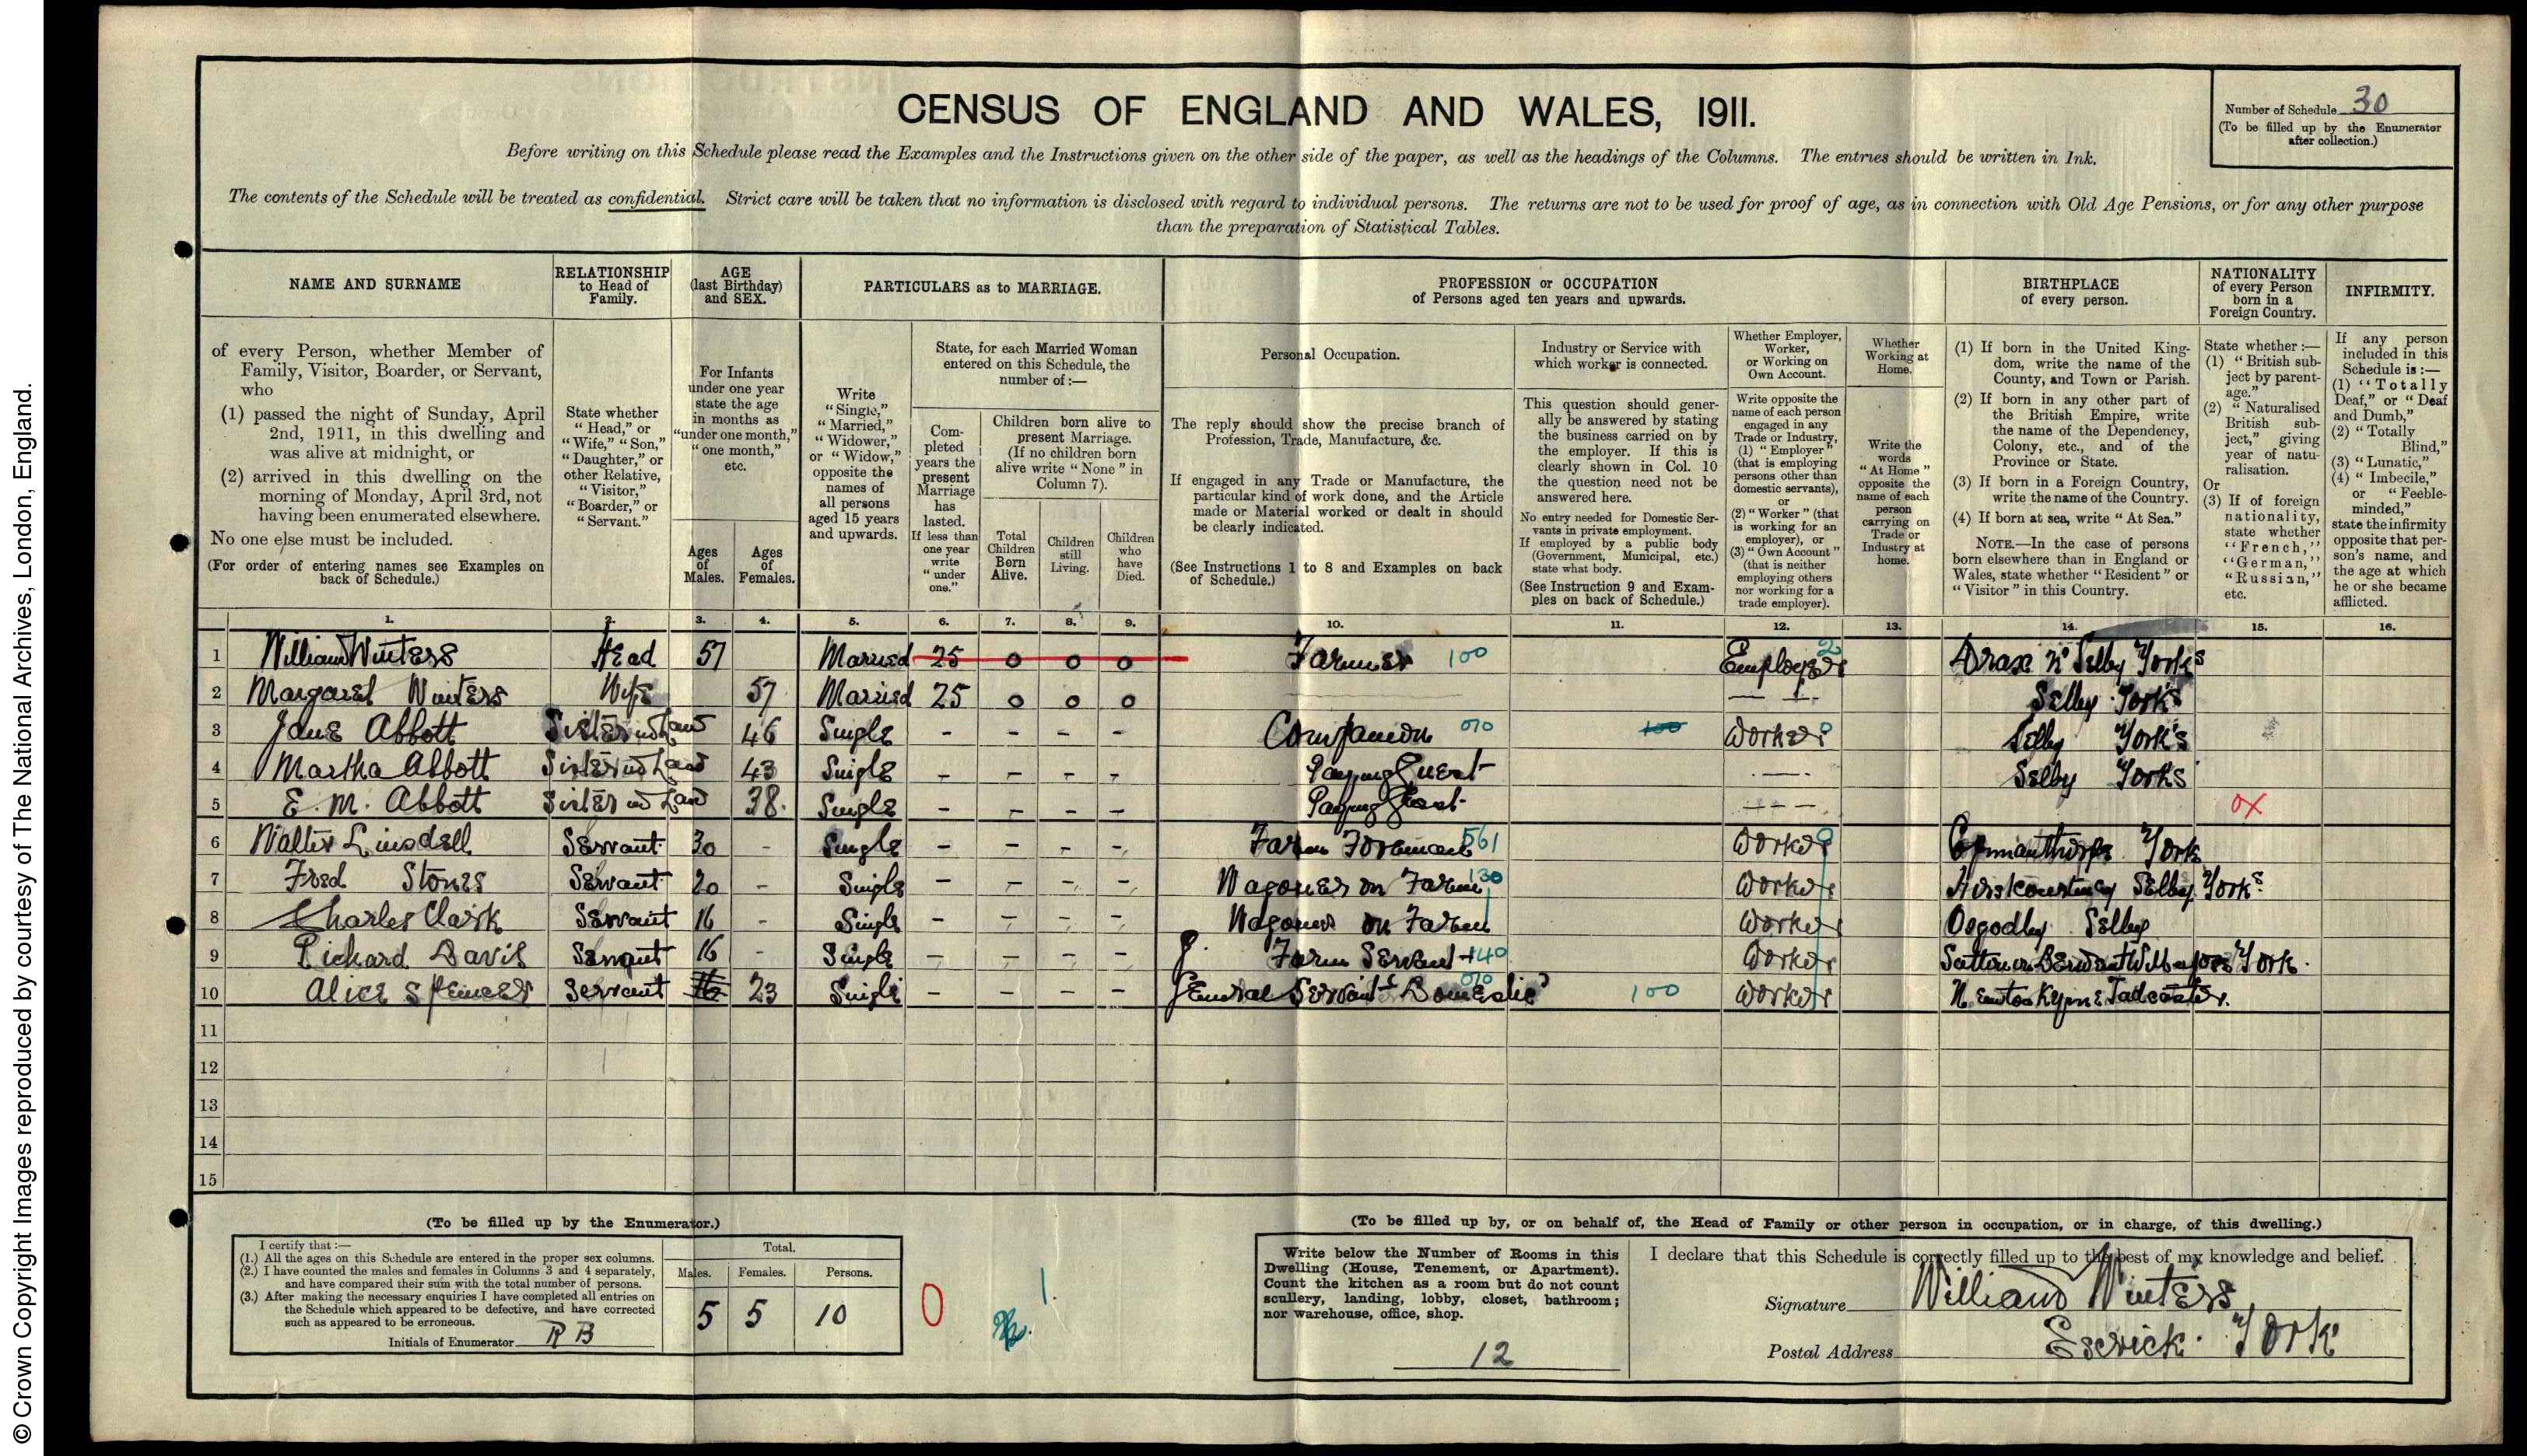 © Crown Copyright Images reproduced by courtesy of The National Archives, London, England.
CENSUS OF ENGLAND AND WALES, 1911.
Number of Schedule 30
(To be filled up by the Enumerator after collection.)
Before writing on this Schedule please read the Examples and the Instructions given on the other side of the paper, as well as the headings of the Columns. The entries should be written in Ink.
The contents of the Schedule will be treated as confidential. Strict care will be taken that no information is disclosed with regard to individual persons. The returns are not to be used for proof of age, as in connection with Old Age Pensions, or for any other purpose
than the preparation of Statistical Tables.
NAME AND SURNAME
of every Person, whether Member of
Family, Visitor, Boarder, or Servant,
who
(1) passed the night of Sunday, April
2nd, 1911, in this dwelling and
was alive at midnight, or
(2) arrived in this dwelling on the
morning of Monday, April 3rd, not
having been enumerated elsewhere.
No one else must be included.
(For order of entering names see Examples on
back of Schedule.)
RELATIONSHIP
to Head of
Family.
State whether
"Head," or
"Wife," "Son,"
"Daughter," or
other Relative,
"Visitor,"
"Boarder," or
"Servant."
AGE
(last Birthday)
and SEX.
For Infants
under one year
state the age
in months as
"under one month,"
"one month,"
etc.
Ages
of
Males.
Ages
of
Females.
PARTICULARS as to MARRIAGE.
Write
"Single,"
"Married,"
"Widower,"
or "Widow,"
opposite the
names of
all persons
aged 15 years
and upwards.
State, for each Married Woman
entered on this Schedule, the
number of:—
Com-
pleted
years the
present
Marriage
has
lasted.
If less than
one year
write
"under
one."
Children born alive to
present Marriage.
(If no children born
alive write "None" in
Column 7).
Total
Children
Born
Alive.
Children
still
Living.
Children
who
have
Died.
PROFESSION or OCCUPATION
of Persons aged ten years and upwards.
Personal Occupation.
The reply should show the precise branch of
Profession, Trade, Manufacture, &c.
If engaged in any Trade or Manufacture, the
particular kind of work done, and the Article
made or Material worked or dealt in should
be clearly indicated.
(See Instructions 1 to 8 and Examples on back
of Schedule.)
Industry or Service with
which worker is connected.
This question should gener-
ally be answered by stating
the business carried on by
the employer. If this is
clearly shown in Col. 10
the question need not be
answered here.
No entry needed for Domestic Ser-
vants in private employment.
If employed by a public body
(Government, Municipal, etc.)
state what body.
(See Instruction 9 and Exam-
ples on back of Schedule.)
Whether Employer,
Worker,
or Working on
Own Account.
Write opposite the
name of each person
engaged in any
Trade or Industry,
(1) "Employer"
(that is employing
persons other than
domestic servants),
or
(2) "Worker" (that
is working for an
employer), or
(3) "Own Account"
(that is neither
employing others
nor working for a
trade employer).
Whether
Working at
Home.
Write the
words
"At Home"
opposite the
name of each
person
carrying on
Trade or
Industry at
home.
BIRTHPLACE
of every person.
(1) If born in the United King-
dom, write the name of the
County, and Town or Parish.
(2) If born in any other part of
the British Empire, write
the name of the Dependency,
Colony, etc., and of the
Province or State.
(3) If born in a Foreign Country,
write the name of the Country.
(4) If born at sea, write "At Sea."
NOTE.—In the case of persons
born elsewhere than in England or
Wales, state whether "Resident" or
"Visitor" in this Country.
NATIONALITY
of every Person
born in a
Foreign Country.
State whether:—
(1) "British sub-
ject by parent-
age."
(2) "Naturalised
British sub-
ject," giving
year of natu-
ralisation.
Or
(3) If of foreign
nationality,
state whether
"French,"
"German,"
"Russian,"
etc.
INFIRMITY.
If any person
included in this
Schedule is:—
(1) "Totally
Deaf," or "Deaf
and Dumb,"
(2) "Totally
Blind,"
(3) "Lunatic,"
(4) "Imbecile,"
or "Feeble-
minded,"
state the infirmity
opposite that per-
son's name, and
the age at which
he or she became
afflicted.
1. 2. 3. 4. 5. 6. 7. 8. 9. 10. 11. 12. 13. 14. 15. 16.
1 William Winters Head 57 Married 25 0 0 0 Farmer 100 Employer 2 Drax Nr Selby Yorks
2 Margaret Winters Wife 57 Married 25 0 0 0 Selby Yorks
3 Jane Abbott Sister in Law 46 Single - - - - Companion 010 100 Worker Selby Yorks
4 Martha Abbott Sister in Law 43 Single - - - - Paying Guest Selby Yorks
5 E. M. Abbott Sister in Law 38 Single - - - - Paying Guest - - - OX
6 Walter Linsdell Servant 30 - Single - - - - Farm Foreman 561 Worker Copmanthorpe York
7 Fred Stones Servant 20 - Single - - - - Wagoner on Farm 130 Worker Selby Yorks
8 Charles Clark Servant 16 - Single - - - - Wagoner on Farm Worker Osgodby Selby
9 Richard Davis Servant 16 - Single - - - - Farm Servant 140 Worker Sutton York
10 Alice Spencer Servant 23 Single - - - - General Servant Domestic 010 100 Worker Newton Kyme Tadcaster.
11
12
13
14
15
(To be filled up by the Enumerator.)
I certify that:—
(1.) All the ages on this Schedule are entered in the proper sex columns.
(2.) I have counted the males and females in Columns 3 and 4 separately,
and have compared their sum with the total number of persons.
(3.) After making the necessary enquiries I have completed all entries on
the Schedule which appeared to be defective, and have corrected
such as appeared to be erroneous.
Initials of Enumerator RB
Total.
Males. Females. Persons.
5 5 10
0
1.
(To be filled up by, or on behalf of, the Head of Family or other person in occupation, or in charge, of this dwelling.)
Write below the Number of Rooms in this
Dwelling (House, Tenement, or Apartment).
Count the kitchen as a room but do not count
scullery, landing, lobby, closet, bathroom;
nor warehouse, office, shop.
12
I declare that this Schedule is correctly filled up to the best of my knowledge and belief.
Signature William Winters
Postal Address Escrick. York